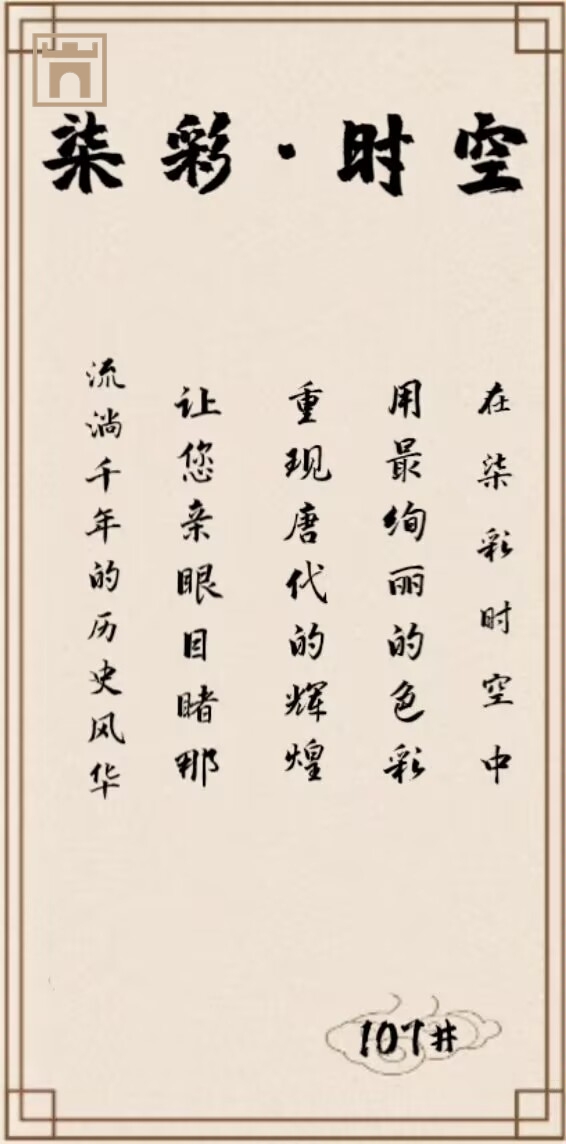 柒彩·时空
在柒彩时空中
用最绚丽的色彩
重现唐代的辉煌
让您亲眼目睹那
流淌千年的历史风华
107#